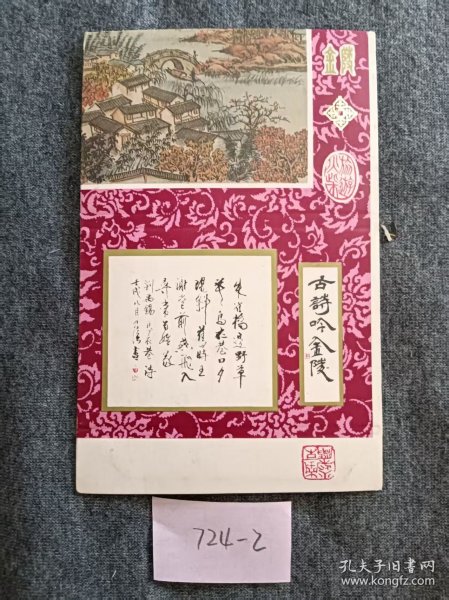 金陵
古詩吟金陵
朱雀橋邊野草
花烏衣巷口夕
陽斜舊時王
謝堂前燕飛入
尋常百姓家
劉禹錫烏衣巷詩
壬戌八月
724-2
孔夫子旧书网
www.kongfz.com